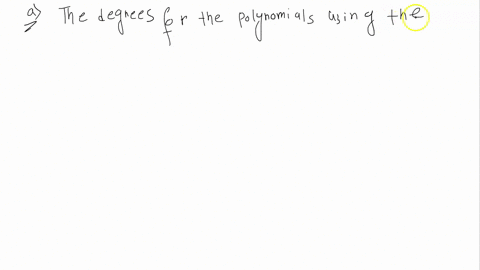 a) The degrees for the polynomials using the